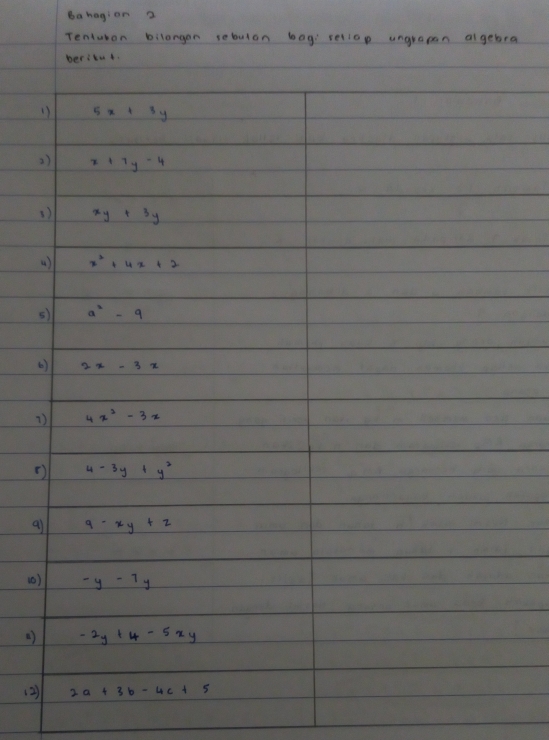 Bahagian 2
Tentukan bilangan sebutan bagi setiap ungkapan algebra
berikut.
1) 5x + 3y
2) x + 7y - 4
3) xy + 3y
4) x² + 4x + 2
5) a² - 9
6) 2x - 3x
7) 4x³ - 3x
8) 4 - 3y + y³
9) 9 - xy + z
10) -y - 7y
11) -2y + 4 - 5xy
12) 2a + 3b - 4c + 5